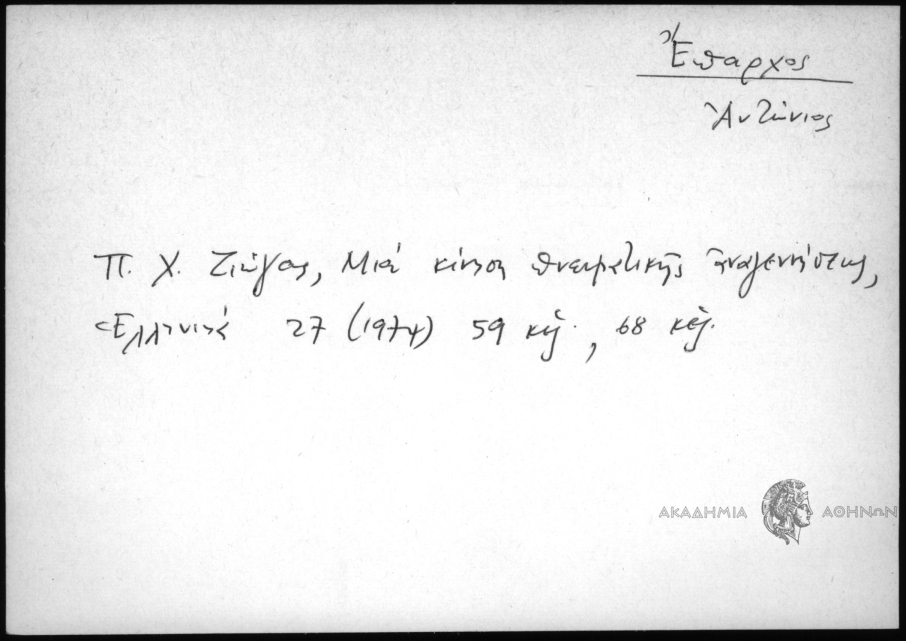 Ἔπαρχος
Ἀντώνιος
Π. Χ. Ζιώγας, Μιὰ κίνηση πνευματικῆς ἀναγεννήσεως,
Ἑλληνικὰ 27 (1974) 59 κἑ., 68 κἑ.
ΑΚΑΔΗΜΙΑ ΑΘΗΝΩΝ